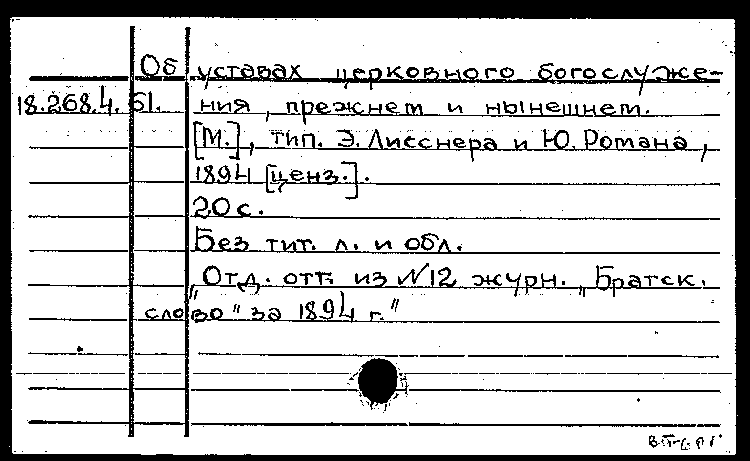 Об уставах церковного богослуже-
18.268.4.61. ния, прежнем и нынешнем.
[М.], тип. Э. Лисснера и Ю. Романа,
1894 [ценз.].
20 с.
Без тит. л. и обл.
„Отд. отт. из №12 журн. „Братск.
слово" за 1894 г."